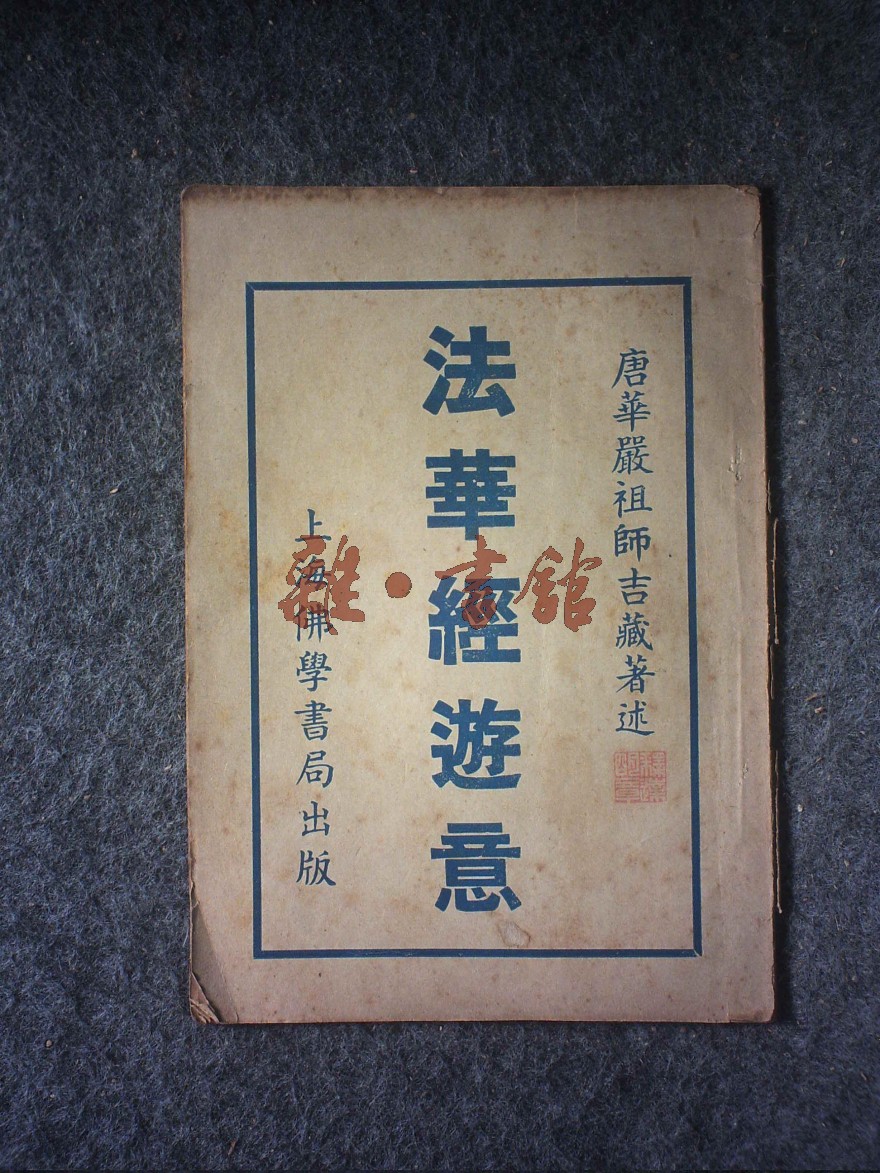 唐華嚴祖師吉藏著述
法華經遊意
上海佛學書局出版
雜·書館